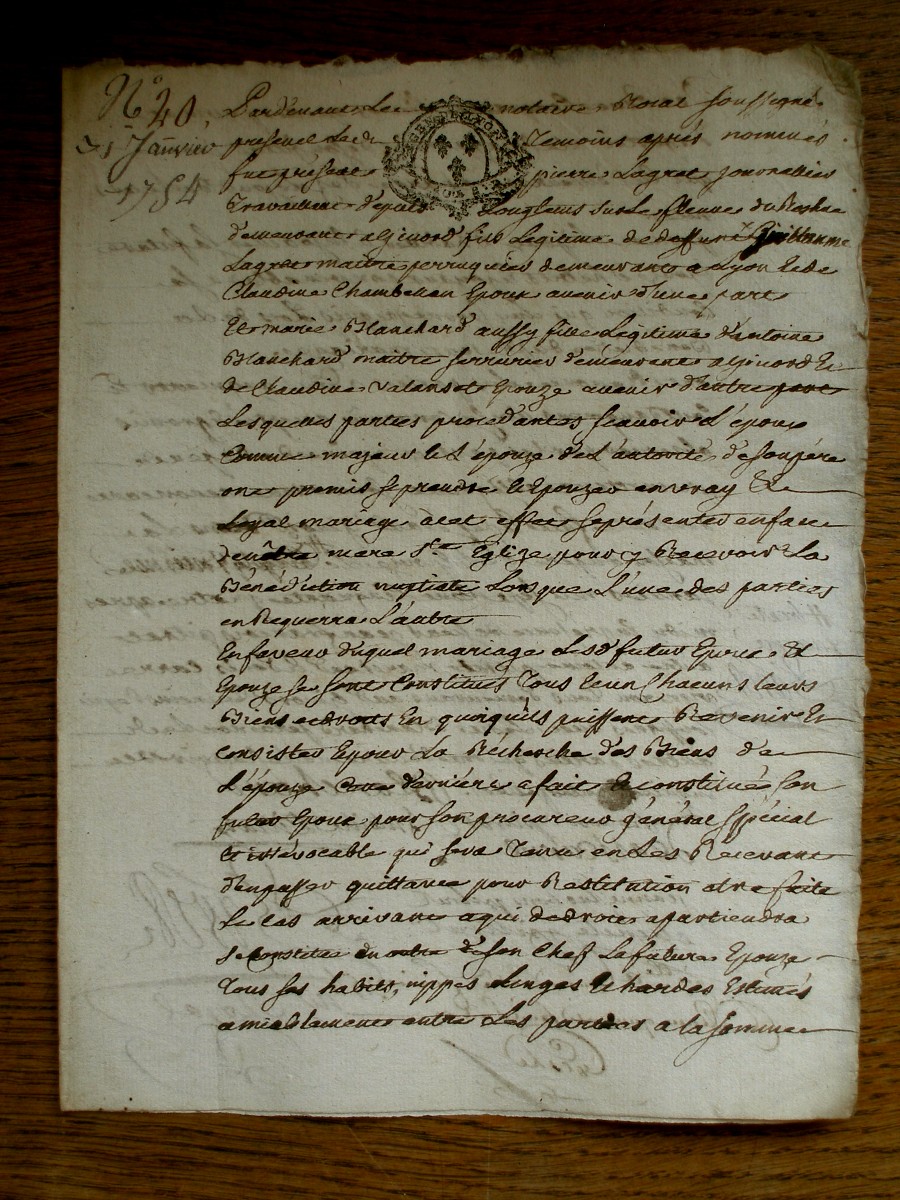 N° 40
31 Janvier
1754
Pardevant Le notaire Roial soussigné
present Les temoins après nommés
fut présent pierre Lagret journallier
travaillant depuis Longtems sur Le fleuve du Rosne
demeurant a fils Legitime de deffunt Guillaume
Lagret maitre perruquier demeurant a Lyon et de
Claudine Chambellan Epoux avenir d'une part
Et marie Blanchard aussy fille Legitime d'antoine
Blanchard maitre serrurier demeurant a Et
de Claudine Epouze avenir d'autre part
Lesquelles parties procedantes scavoir L'époux
Comme majeur et L'épouze de L'autorité de son pére
ont promis se prendre et Epouzer en vray et
Loyal mariage a cet effet se présenter en face
de nôtre mere Ste Eglize pour y Recevoir La
Bénédiction nuptiale Lorsque L'une des parties
en Requerra L'autre
En faveur duquel mariage Lesd futur Epoux et
Epouze se sont Constitués tous et un Chacuns leurs
Biens et droits En quoi qu'ils puissent Revenir et
Consister Et pour La Recherche des Biens de
L'épouze cette derniére a fait et constitué son
futur Epoux pour son procureur général spécial
et irrévocable qui sera tenu en Les Recevant
d'en passer quittance pour Restitution etre faite
Le cas arrivant a qui de droit apartiendra
se Constitue en outre de son Chef La future Epouze
tous ses habits, nippes Linges et hardes Estimés
amiablement entre Les parties a la somme